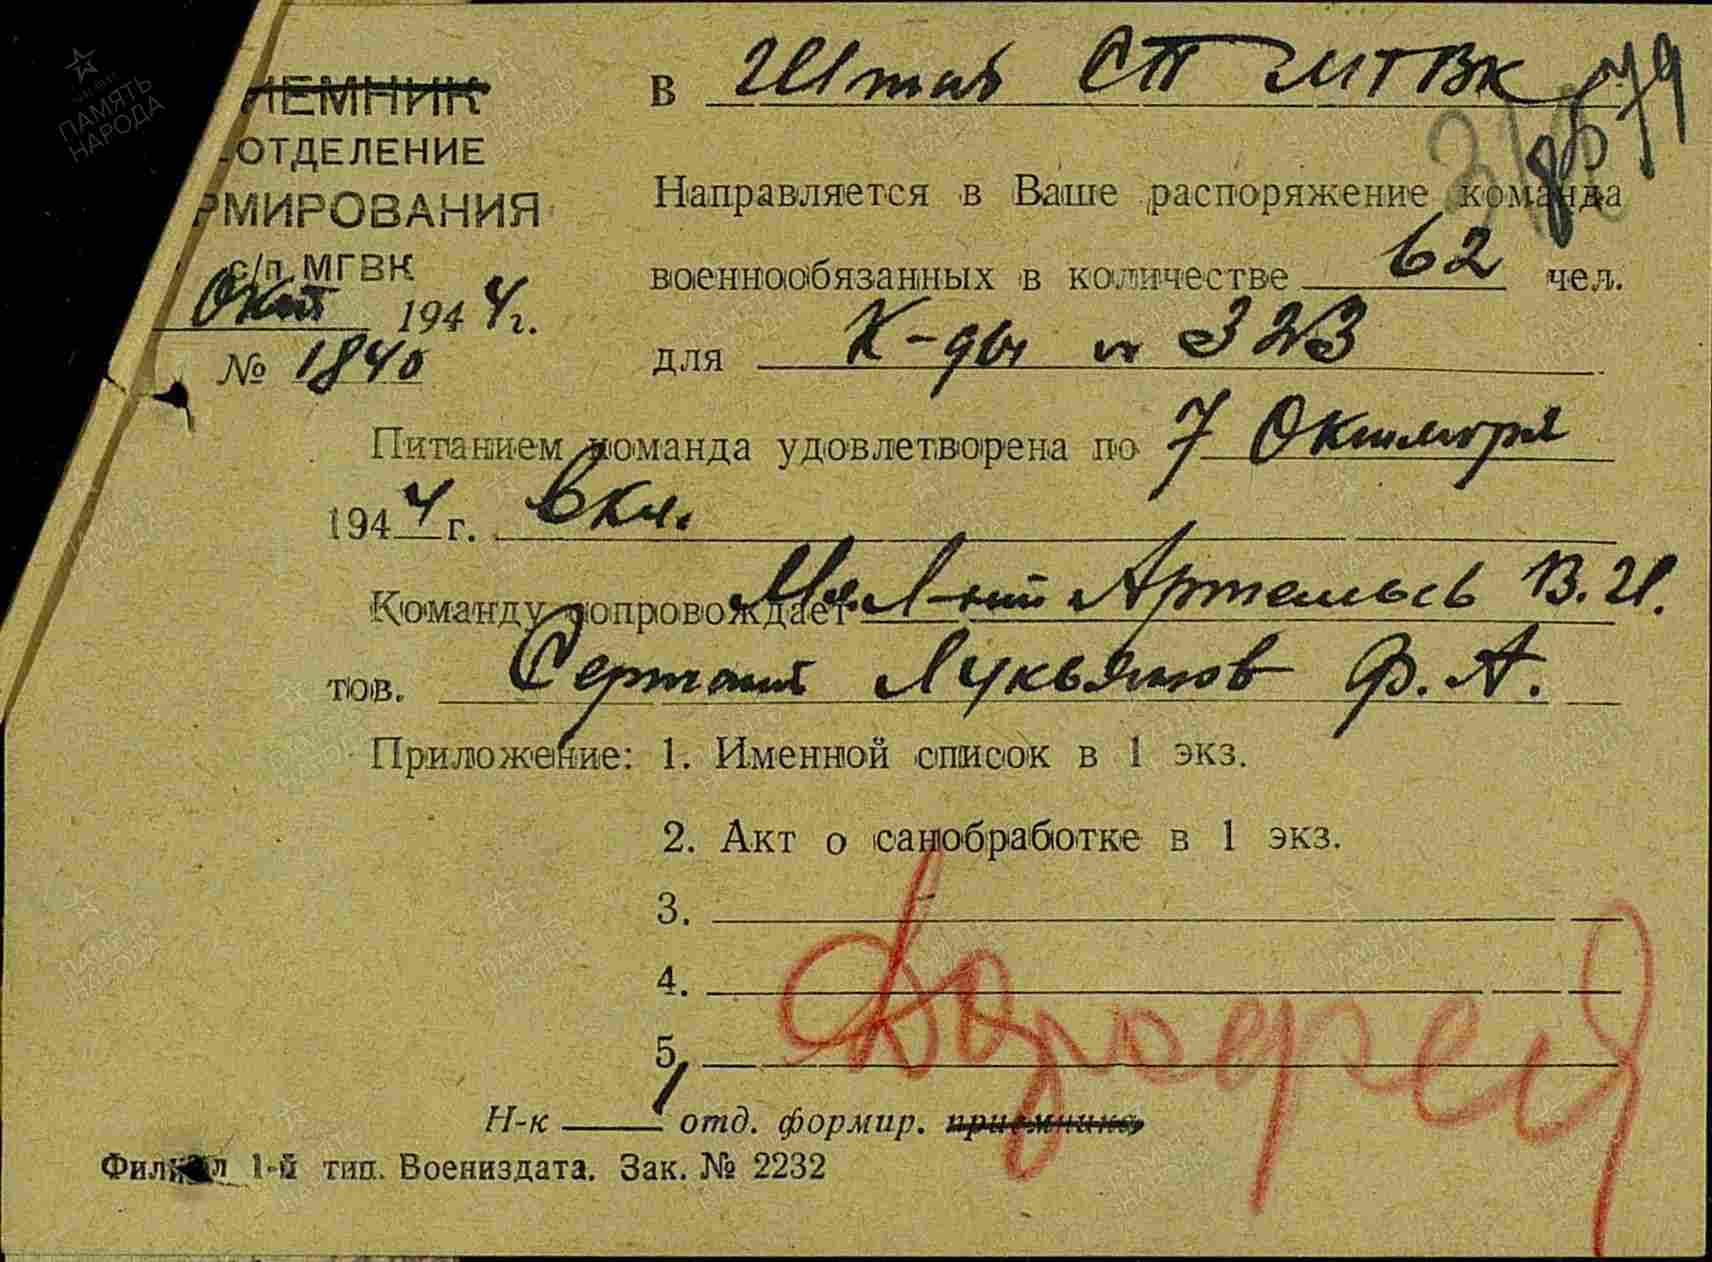 ИЕМНИК
ОТДЕЛЕНИЕ
РМИРОВАНИЯ
с/п МГВК
Окт 1944 г.
№ 1840
В Штаб СП МГВК
79
Направляется в Ваше распоряжение команда
военнообязанных в количестве 62 чел.
для К-ды № 323
Питанием команда удовлетворена по 7 Октября
1944 г. вкл.
Команду сопровождает Мл. Л-нт В. И.
тов. Сержант Лукьянов Ф. А.
Приложение: 1. Именной список в 1 экз.
2. Акт о санобработке в 1 экз.
3.
4.
5.
Н-к 1 отд. формир. приемника
Филиал 1-й тип. Воениздата. Зак. № 2232
ПАМЯТЬ
НАРОДА